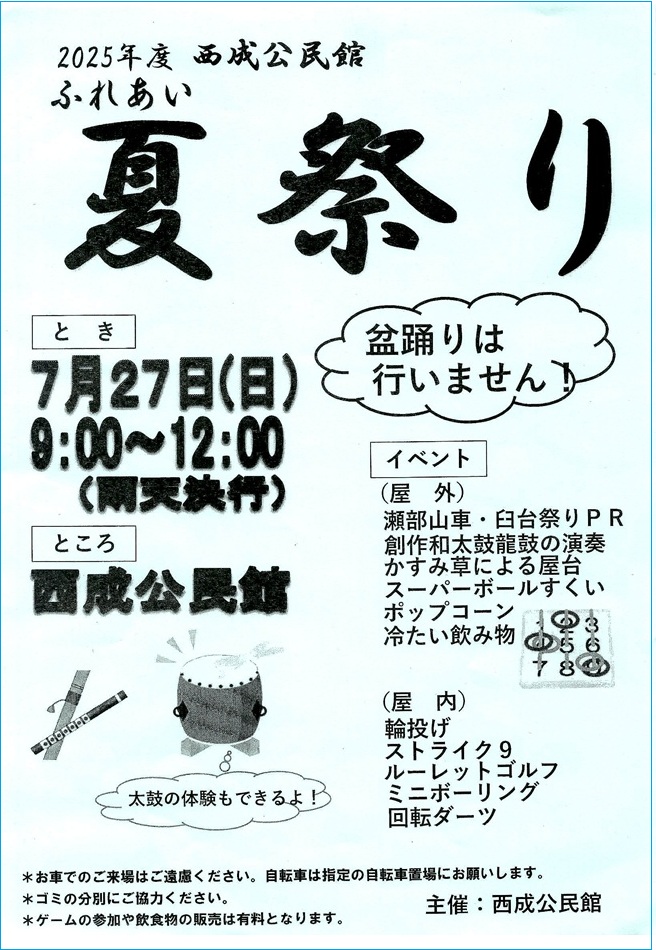 2025年度 西成公民館
ふれあい
夏祭り
とき
7月27日(日)
9:00～12:00
(雨天決行)
ところ
西成公民館
盆踊りは
行いません！
イベント
(屋 外)
瀬部山車・臼台祭りPR
創作和太鼓龍鼓の演奏
かすみ草による屋台
スーパーボールすくい
ポップコーン
冷たい飲み物
1 2 3
4 5 6
7 8 9
(屋 内)
輪投げ
ストライク9
ルーレットゴルフ
ミニボーリング
回転ダーツ
太鼓の体験もできるよ！
＊お車でのご来場はご遠慮ください。自転車は指定の自転車置場にお願いします。
＊ゴミの分別にご協力ください。
＊ゲームの参加や飲食物の販売は有料となります。
主催：西成公民館